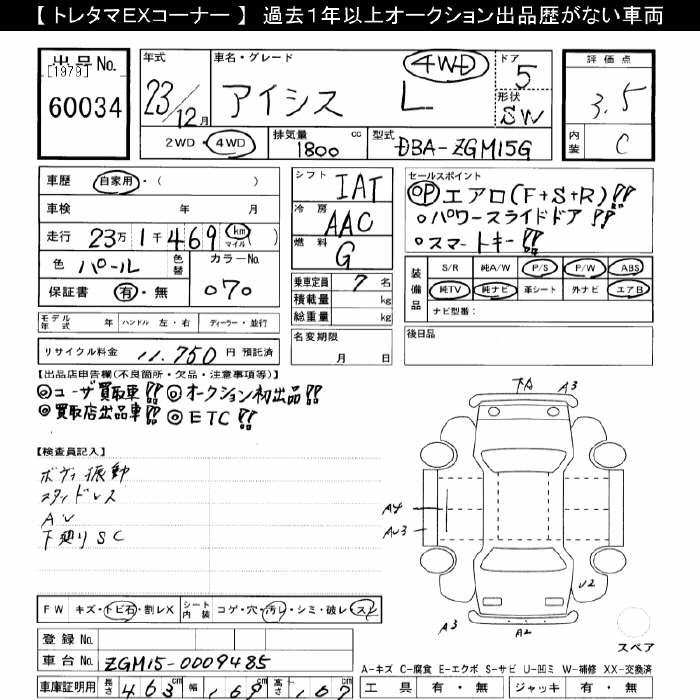 【 トレタマEXコーナー 】 過去１年以上オークション出品歴がない車両
出品No.
[1979]
60034
年式
23/12月
車名・グレード
アイシス L
4WD
ドア
5
形状
SW
2WD・4WD
排気量
1800 cc
型式
DBA-ZGM15G
評価点
3.5
内装
C
車歴 自家用・( )
車検 年 月
走行 23万 1千 469 km マイル ( )
色 パール 色替 カラーNo.
070
保証書 有・無
シフト IAT
冷房 AAC
燃料 G
乗車定員 7 名
積載量 kg
総重量 kg
セールスポイント
◎P エアロ(F+S+R)!!
○パワースライドドア!!
○スマートキー!!
装備品
S/R 純A/W P/S P/W ABS
純TV 純ナビ 革シート 外ナビ エアB
ナビ型番:
モデル年式 年 ハンドル 左・右 ディーラー・並行
名変期限
月 日
後日品
リサイクル料金 11,750 円 預託済
【出品店申告欄(不良箇所・欠品・注意事項等)】
◎ユーザ買取車!! ◎オークション初出品!!
◎買取店出品車!! ◎ETC!!
【検査員記入】
ボディ振動
スタイドレス
AU
下廻りSC
TA A3
A4
AU3
U2
A3
A2
スペア
FW キズ・トビ石・割レX シート内装 コゲ・穴・汚レ・シミ・破レ・スレ
登録No.
車台No. ZGM15-0009485
車庫証明用 長さ 463cm 幅 169cm 高さ 167cm
A-キズ C-腐食 E-エクボ S-サビ U-凹ミ W-補修 XX-交換済
工具 有・無 ジャッキ 有・無